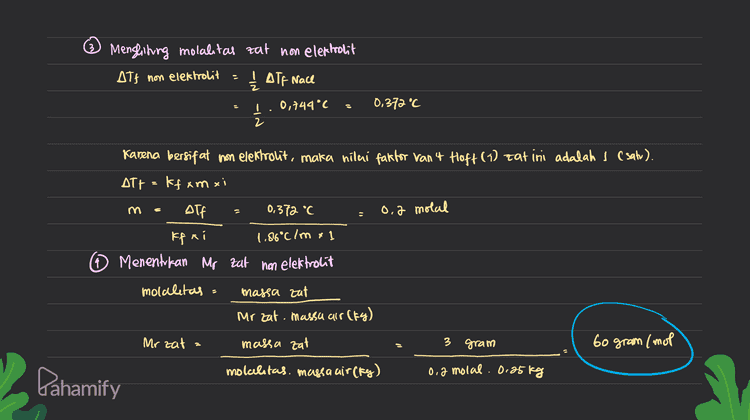 ③ Menghitung molalitas zat non elektrolit
ΔTf non elektrolit = 1/2 ΔTf NaCl
= 1/2 . 0,744°C = 0,372 °C
Karena bersifat non elektrolit, maka nilai faktor Van't Hoff (i) zat ini adalah 1 (satu).
ΔTf = Kf x m x i
m = ΔTf / Kf x i = 0,372 °C / 1,86°C/m x 1 = 0,2 molal
④ Menentukan Mr zat non elektrolit
molalitas = massa zat / Mr zat . massa air (kg)
Mr zat = massa zat / molalitas . massa air (kg) = 3 gram / 0,2 molal . 0,25 kg = 60 gram/mol
Pahamify